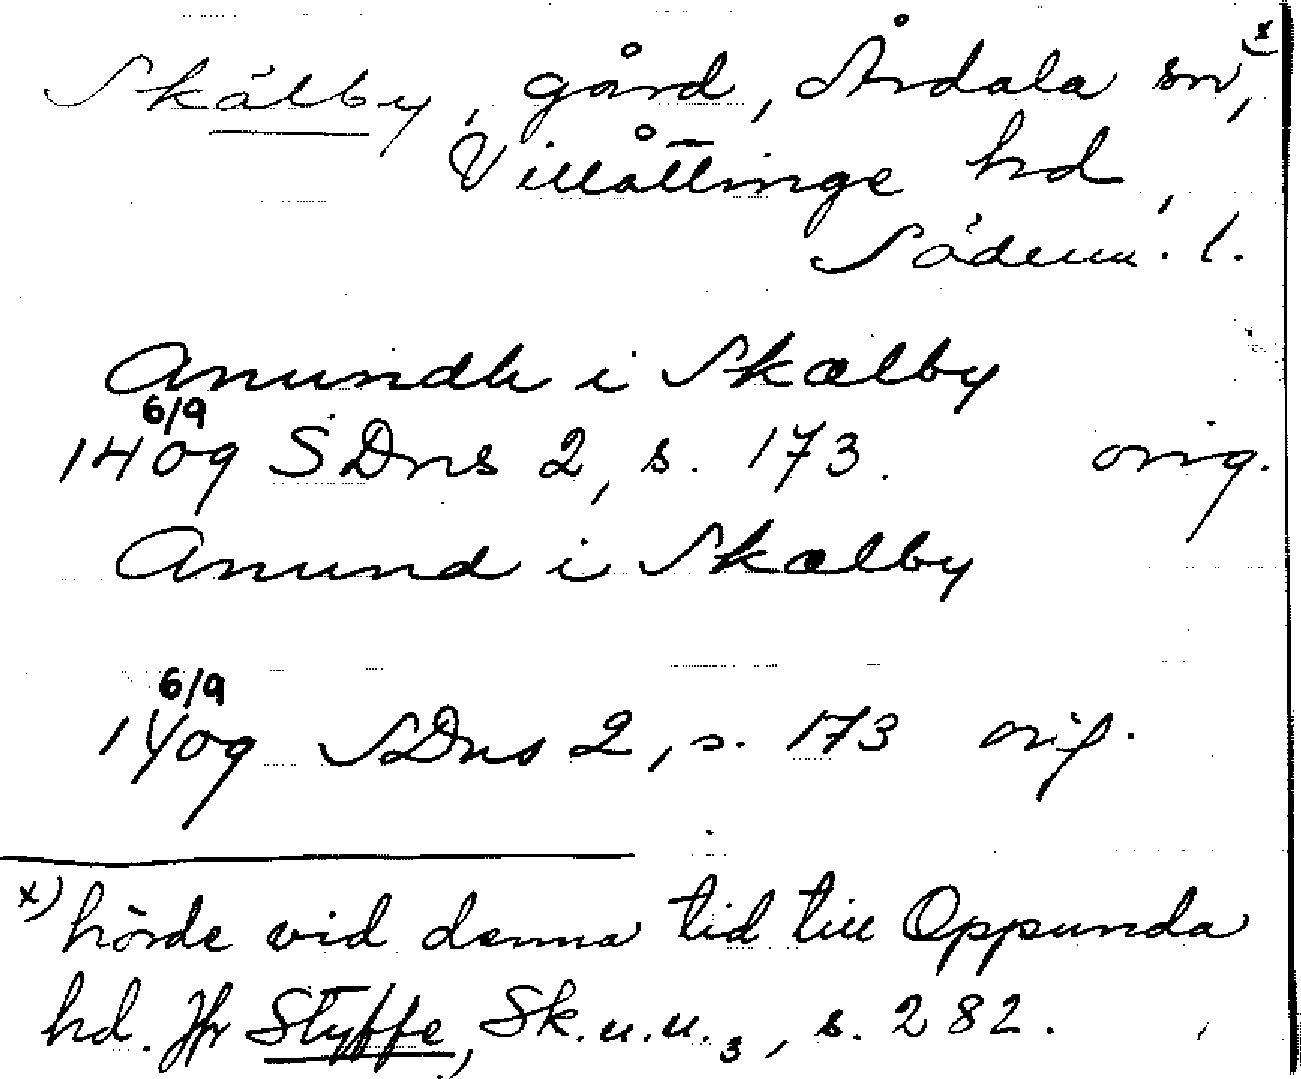 Skälby, gård, Årdala sn, x)
Villåttinge hd,
Söderm. l.
Anundh i Skælby
6/9
1409 SDns 2, s. 173. orig.
Anund i Skælby
6/9
1409 SDns 2, s. 173 orig.
x) hörde vid denna tid till Oppunda
hd. Jfr Styffe, Sk.u.u.3, s. 282.